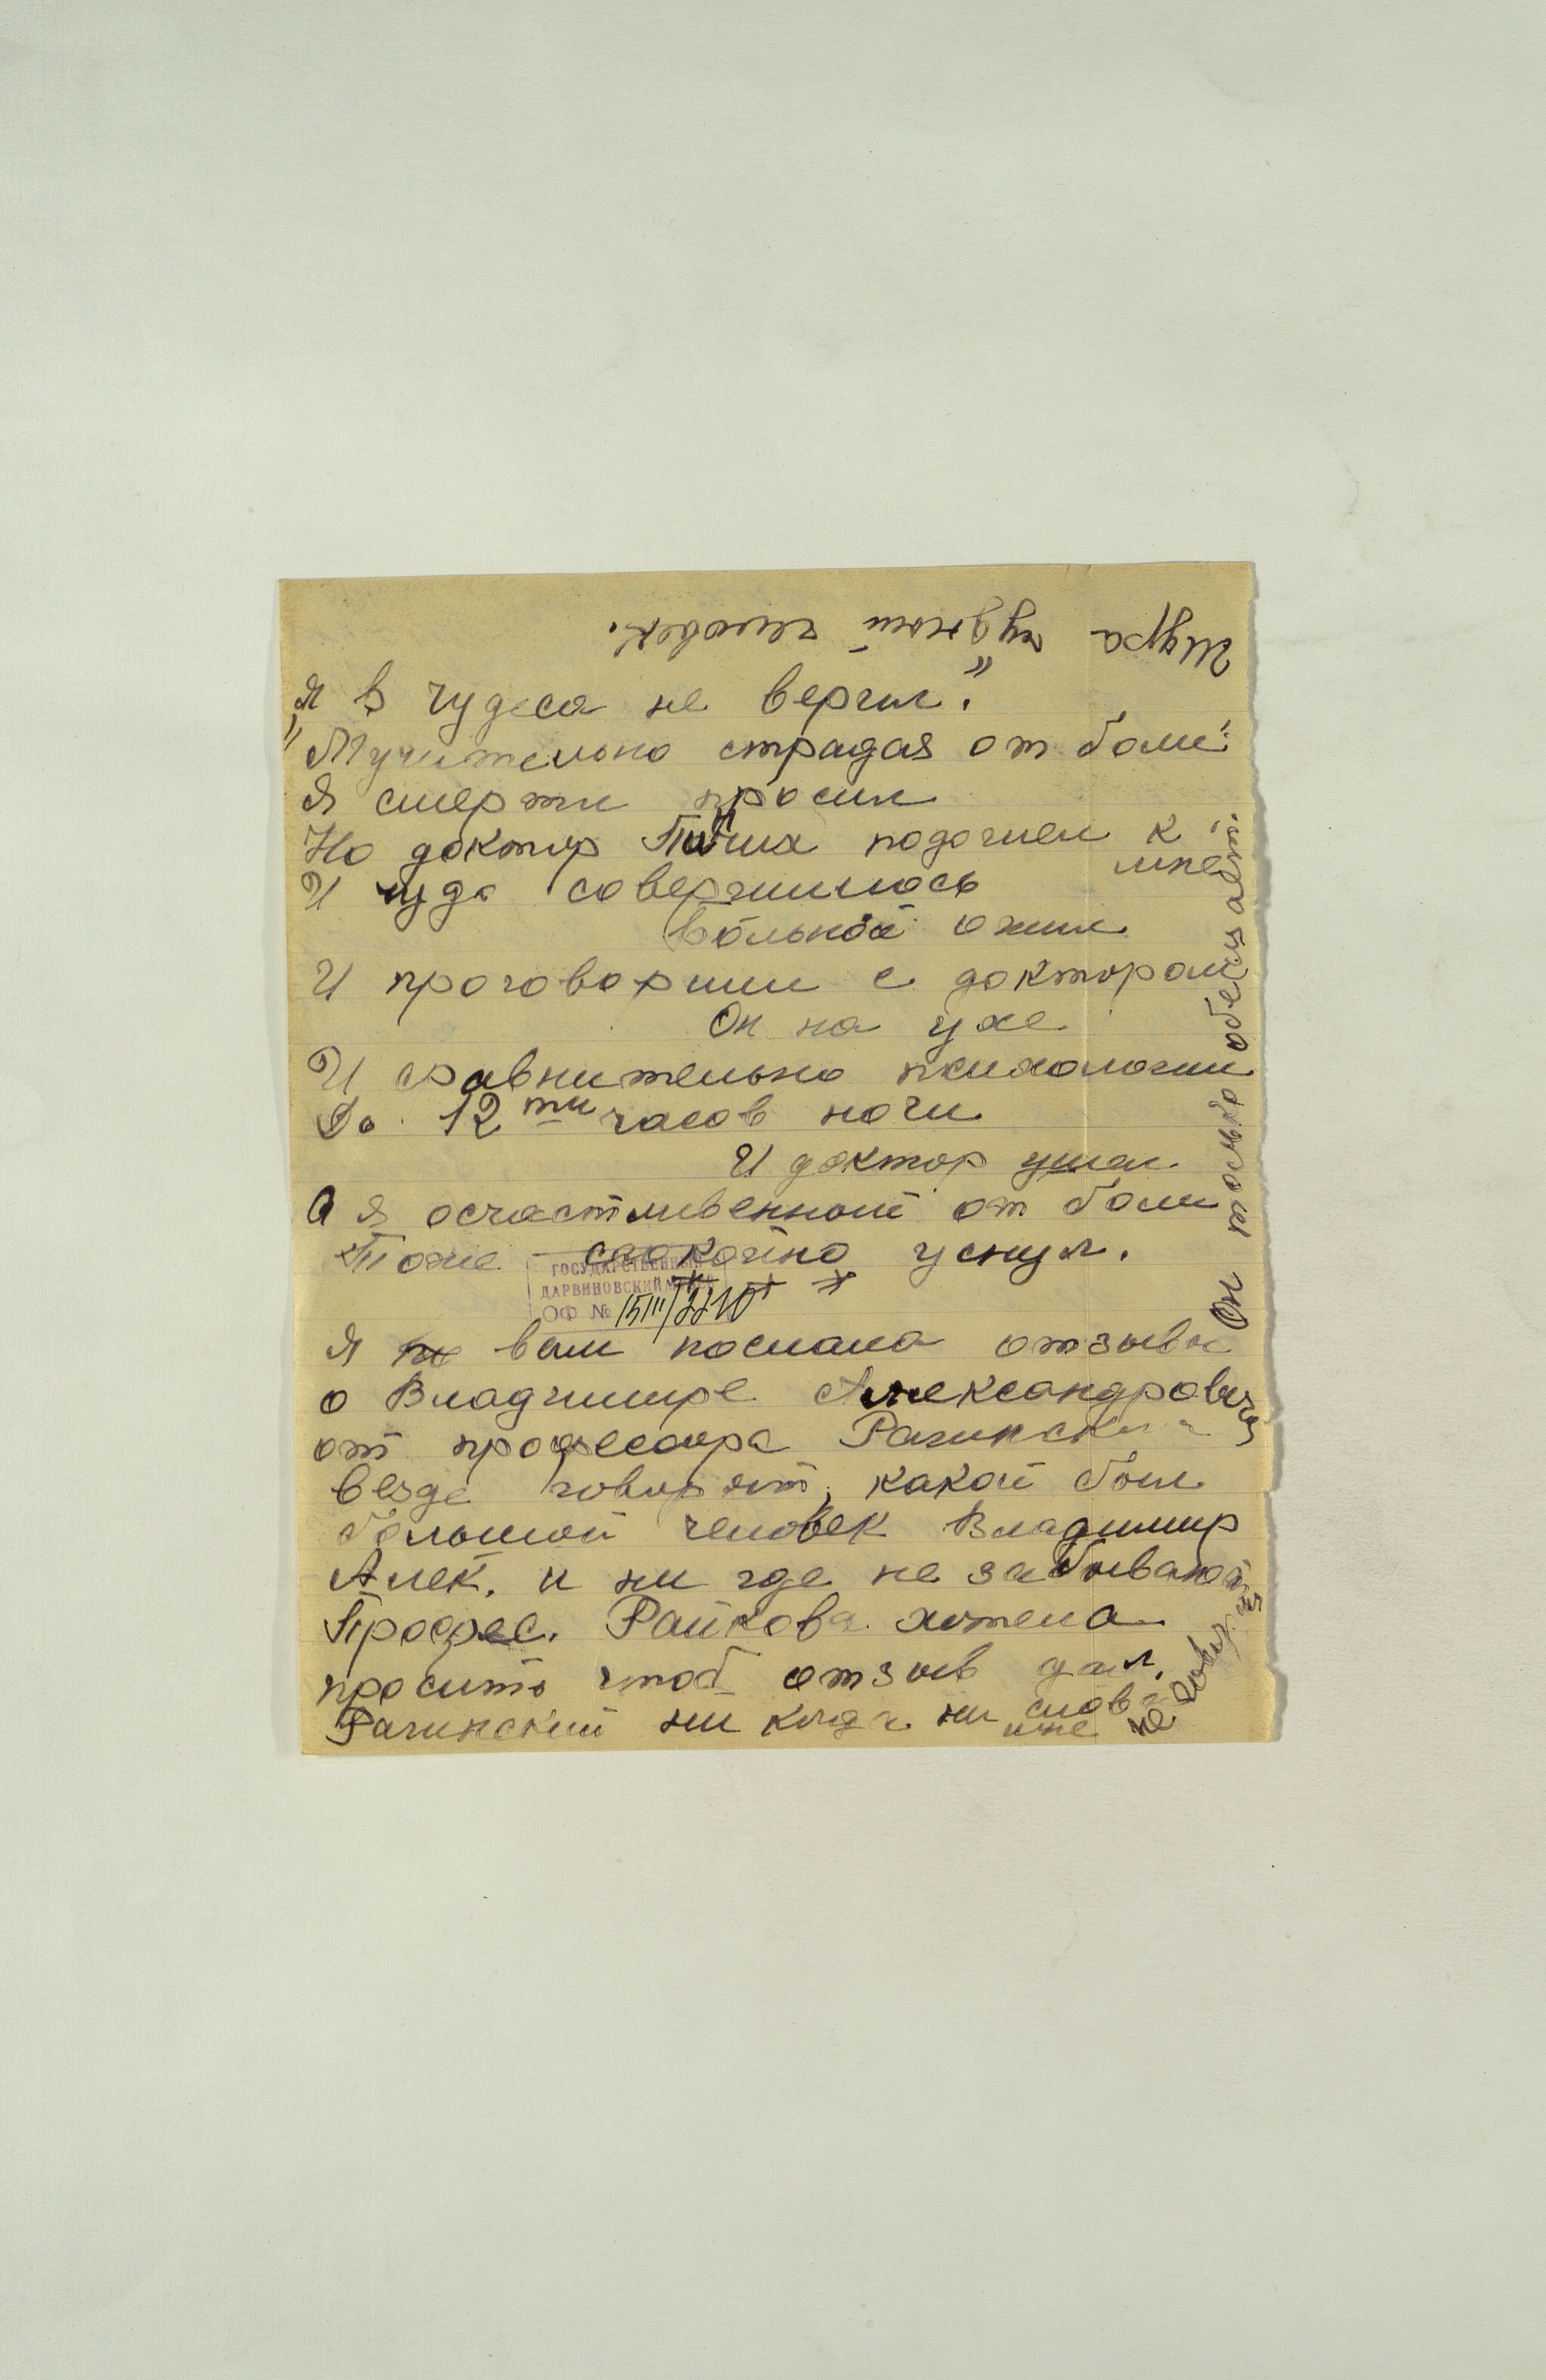 Шура чудный человек.
Я в чудеса не верил."
"Мучительно страдая от боли
Я смерти просил
Но доктор подошел к
мне
И чудо совершилось
Больной ожил
И проговорили с доктором
Он на уже
И сравнительно психологии
До 12ти часов ночи
И доктор ушел.
А я осчастливенный от боли
Тоже спокойно уснул.
ГОСУДАРСТВЕННЫЙ
ДАРВИНОВСКИЙ МУЗЕЙ
ОФ № 15111/2210
Я вам послала отзывы
о Владимире Александровиче
от профессора Рагинский
везде говорят, какой был
большой человек Владимир
Алек. и ни где не забывают
Професс. Райкова хотела
просить чтоб отзыв дал.
Рагинский ни когда ни слова
мне не говорит
Он только обещает.